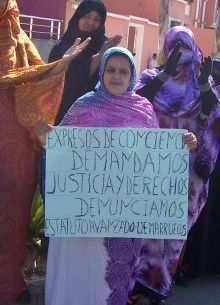 EXPRESOS DE COMCIEMCIA
DEMANDAMOS
JUSTICIA Y DERECHOS
DEMUMCIAMOS
ESTATUTO AVAMZADO DE MARRUECOS